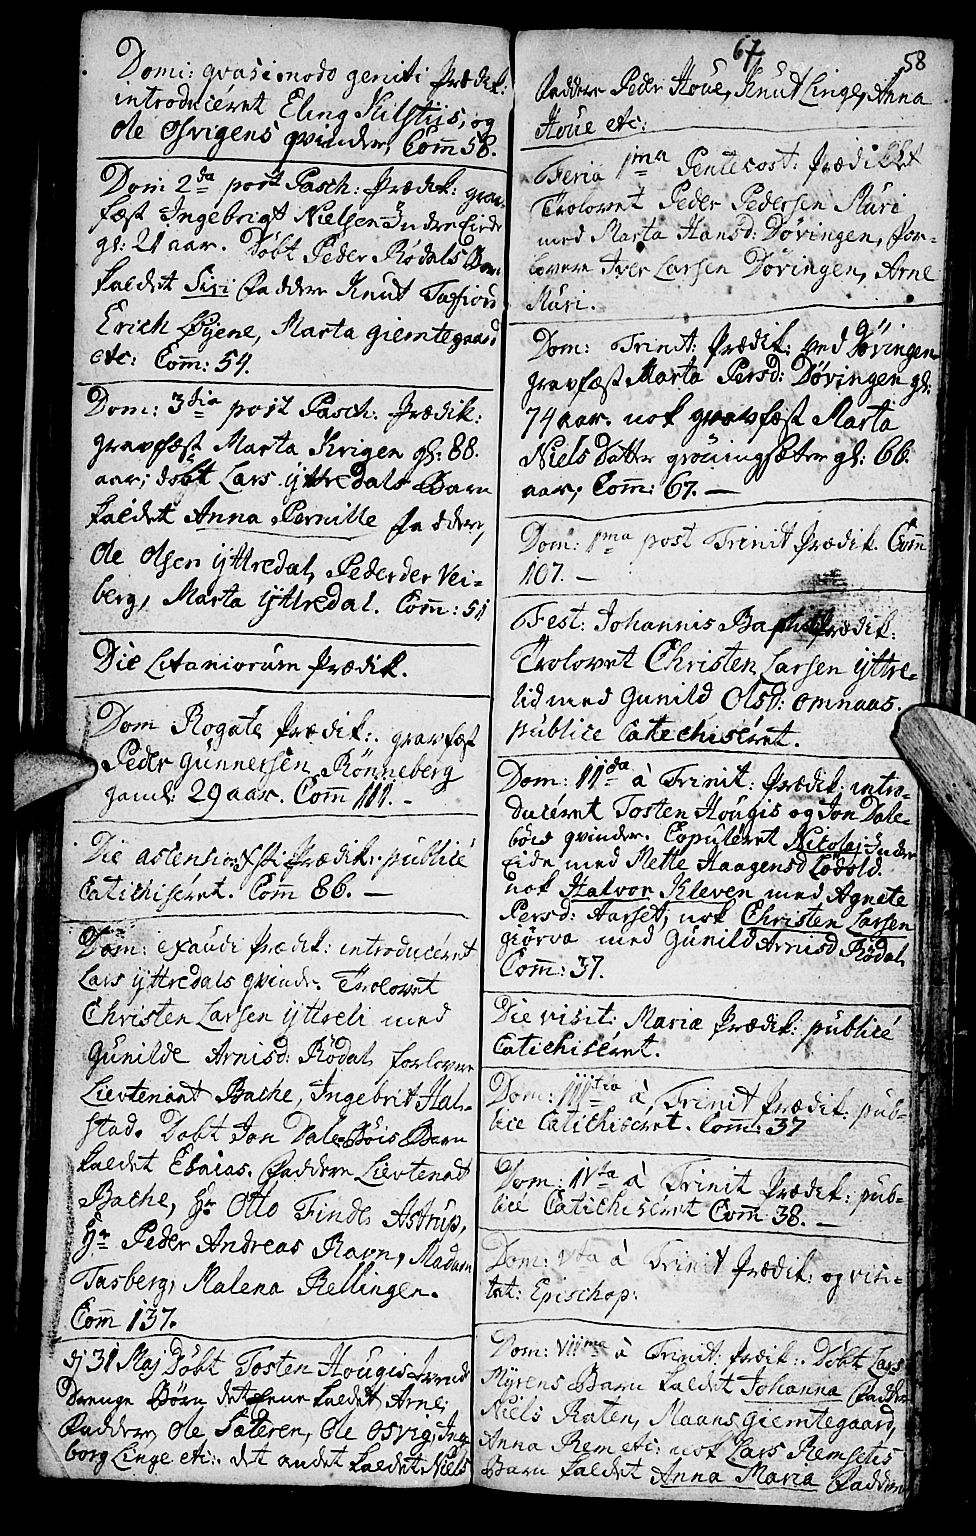 Domi: qvasimodo geniti Prædik:
introduceret Eling Kilstiis, og
Ole Osvigens qvinder, Com̄ 58.
Dom 2da post Pasch: Prædik: grav-
fæst Ingebrigt Nielsen Indreeide
gl: 21 aar. Døbt Peder Rødals Barn
kaldet Siri Faddere Knut Tafiord
Erich Løyene, Marta giemtegaard
etc: Com̄: 54.
Dom: 3tia post Pasch: Prædik:
gravfæst Marta Krigen gl: 88.
aar; døbt Lars ÿttredals Barn
kaldet Anna Pernille Faddere,
Ole Olsen ÿttredal, Peder der Vei-
berg, Marta ÿttredal. Com̄: 51
Die Litaniorum Prædik.
Dom Rogate Prædik: gravfæst
Peder Gunnersen Rønneberg
gaml: 29 aar. Com̄ 111. -
Die astensios Xsti Prædik: publicé
Catichiséret. Com̄ 86. -
Dom: exaudi Prædik: introduceret
Lars ÿttredals qvinde. Trolovet
Christen Larsen ÿttreli med
Gunilde Arnisd: Rødal, forlovere
Lieutenant Bache, Ingebrit Hal-
stad. Døbt Jon Dale-Bøis Barn
kaldet Esaias. Faddere Lieutenadt
Bache, Hr Otto Finde Astrup,
Hr Peder Andreas Ravn, Madam
Tasberg, Malena Rellingen.
Com̄ 137.
dj 31 Maj Døbt Tosten Hougis
Drenge Børn det Eene kaldet Arne,
Faddere, Ole Sæteren, Ole Osvig, Inge
borg Linge etc: det andet kaldet Niels
67 58
Faddere Peder Houe, Knut Linge, Anna
Houe etc:
Feria 1ma Pentecost: Prædikket
Trolovet Peder Pedersen Muri
med Marta Hansd: Døvingen, for-
lovere Iver Larsen Døvingen, Arne
Muri.
Dom: Trinit: Prædik: ved Døvingen
gravfæst Marta Persd: Døvingen gl:
74 aar. nok gravfæst Marta
Niels Datter grøningsæter gl: 66.
aar; Com̄: 67. -
Dom: 1ma post Trinit Prædik. Com̄
107. -
Fest: Johannis Baptist Prædik:
Trolovet Christen Larsen ÿttre-
lid med Gunild Olsd: omnaas.
publice Catechiséret.
Dom: IIda à Trinit: Prædik: intro-
ducéret Tosten Hougis og Jon Dale-
bøes qvinder. Copuléret Nicolai Indre
Eide med Mette Haagensd Løvold.
nok Halvor Kleven med Agnete
Persd: Aarset, nok Christen Larsen
giørva med Gunild Arnisd Rødal
Com̄: 37.
Die visit: Mariæ Prædik: publicé
Catichiséret.
Dom: IIItia à Trinit Prædik: pub-
lice Catichiséret. Com̄: 37
Dom: IVta à Trinit Prædik: pub-
licé Catichiséret Com̄: 38. -
Dom: Vta à Trinit Prædik: og visi-
tat: Epischop:
Dom: VIIma à Trinit: Prædik: Døbt Lars
Myrens Barn kaldet Johanna Faddere
Niels Raten, Maans giemtegaard,
Anna Rem etc: nok Lars Remsetis
Barn kaldet Anna Maria Faddere